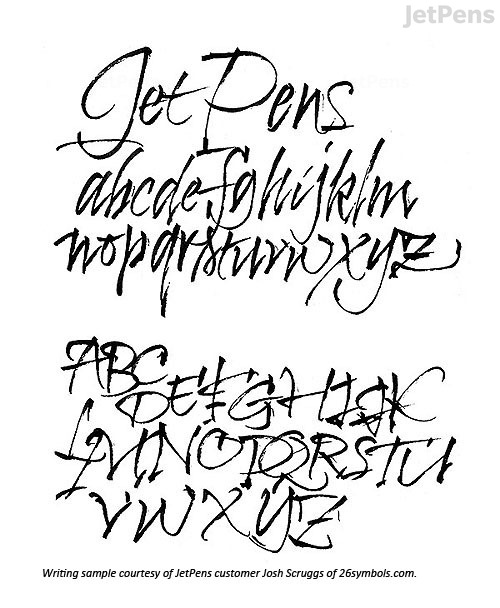 JetPens
Jet Pens
abcdefghijklm
nopqrstuvwxyz
ABC
DEFGHIJK
LMNOPQRSTU
VWXYZ
Writing sample courtesy of JetPens customer Josh Scruggs of 26symbols.com.